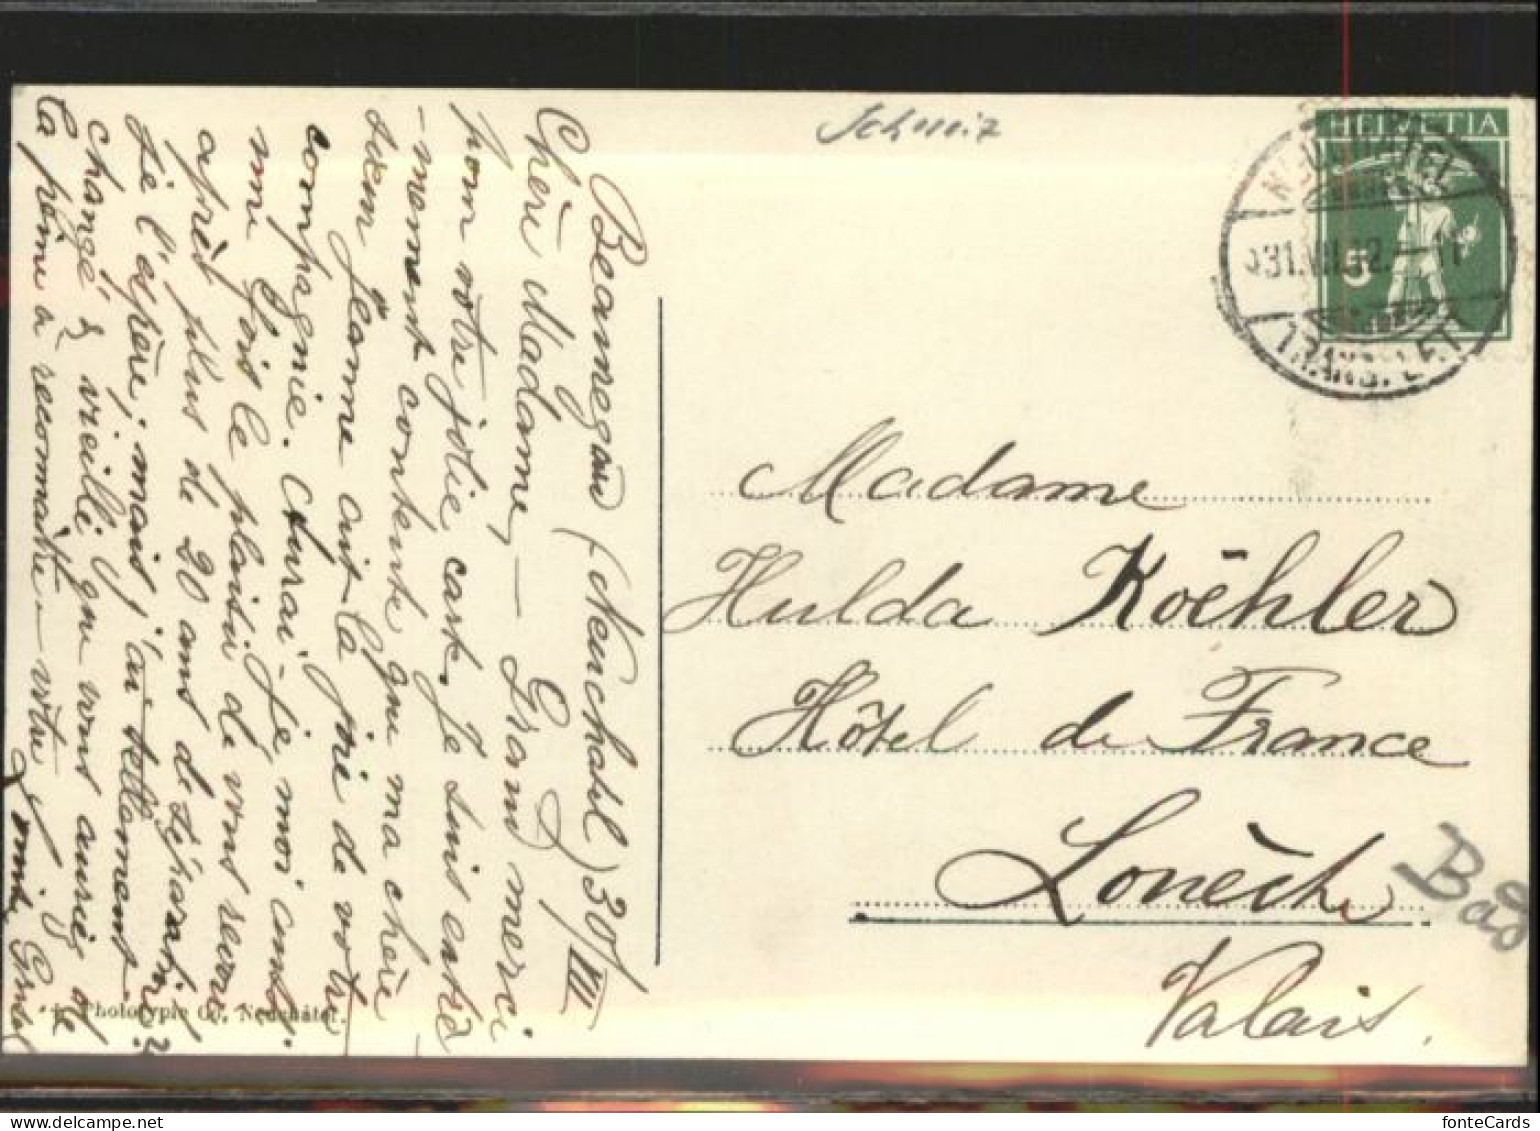 Schweiz
HELVETIA
NEUCHATEL
31.VII.12.–11
5
TRANS. LET
Beauregard (Neuchâtel) 30/VII
Chère Madame, — Grand merci
pour votre jolie carte. Je suis
-moment contente que ma chère
sœur Jeanne ait la joie de votre
compagnie. Aurai-je moi aussi
une fois le plaisir de vous revoir
après plus de 20 ans de séparation?
Je l'espère; mais j'ai tellement
changé & vieilli que vous aurez de
la peine à reconnaître votre
Madame
Hulda Koëhler
Hôtel de France
Louèche
Bad
Valais.
Phototypie Co. Neuchâtel.
fonteCards